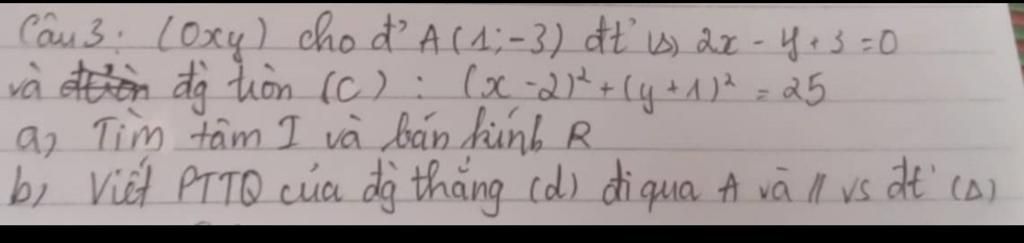 Câu 3: (Oxy) cho đ' A(1;-3) đt' (Δ) 2x - y + 3 = 0
và đg tròn (C) : (x - 2)² + (y + 1)² = 25
a) Tìm tâm I và bán kính R
b) Viết PTTQ của đg thẳng (d) đi qua A và // vs đt' (Δ)